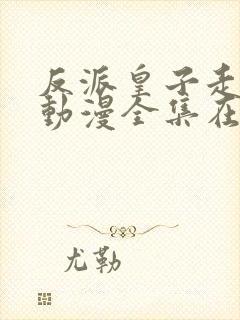 反派皇子走
動漫全集在
尤勒